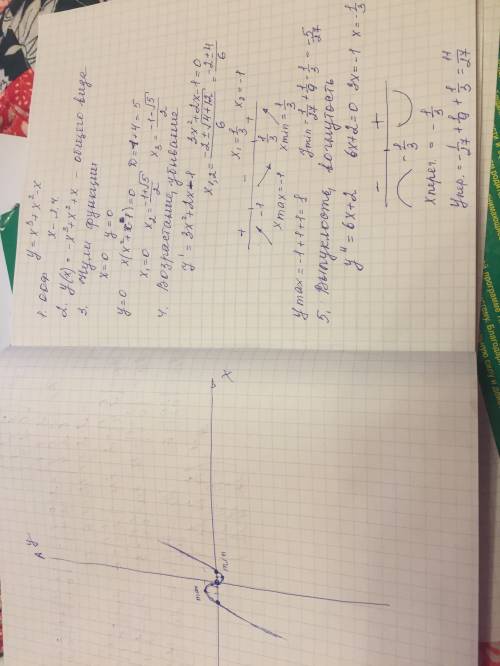 y = x³ + x² - x
1. ООФ
x - ∂.ч.
2. y(x) = -x³ + x² + x - общего вида
3. Нули функции
x = 0 y = 0
y = 0 x(x² + x - 1) = 0 D = 1 + 4 = 5
x₁ = 0 x₂ = (-1 + √5)/2 x₃ = (-1 - √5)/2
4. Возрастание, убывание
y' = 3x² + 2x - 1 3x² + 2x - 1 = 0
x₁,₂ = (-2 ± √(4 + 12))/6 = (-2 ± 4)/6
x₁ = 1/3 x₂ = -1
+ - +
-1 1/3
x max = -1 x min = 1/3
y max = -1 + 1 + 1 = 1 y min = 1/27 + 1/9 - 1/3 = -5/27
5. Выпуклость, вогнутость
y" = 6x + 2 6x + 2 = 0 3x = -1 x = -1/3
- +
-1/3
x переч. = -1/3
y пер. = -1/27 + 1/9 + 1/3 = 11/27
y
x
max
min